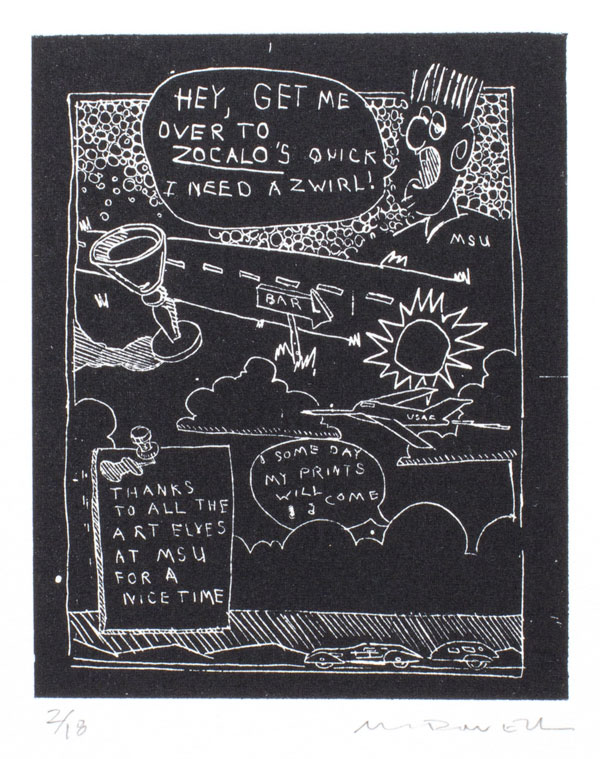 HEY, GET ME
OVER TO
ZOCALO'S QUICK
I NEED A ZWIRL!
MSU
BAR
USAF
SOME DAY
MY PRINTS
WILL COME
THANKS
TO ALL THE
ART ELVES
AT MSU
FOR A
NICE TIME
2/18